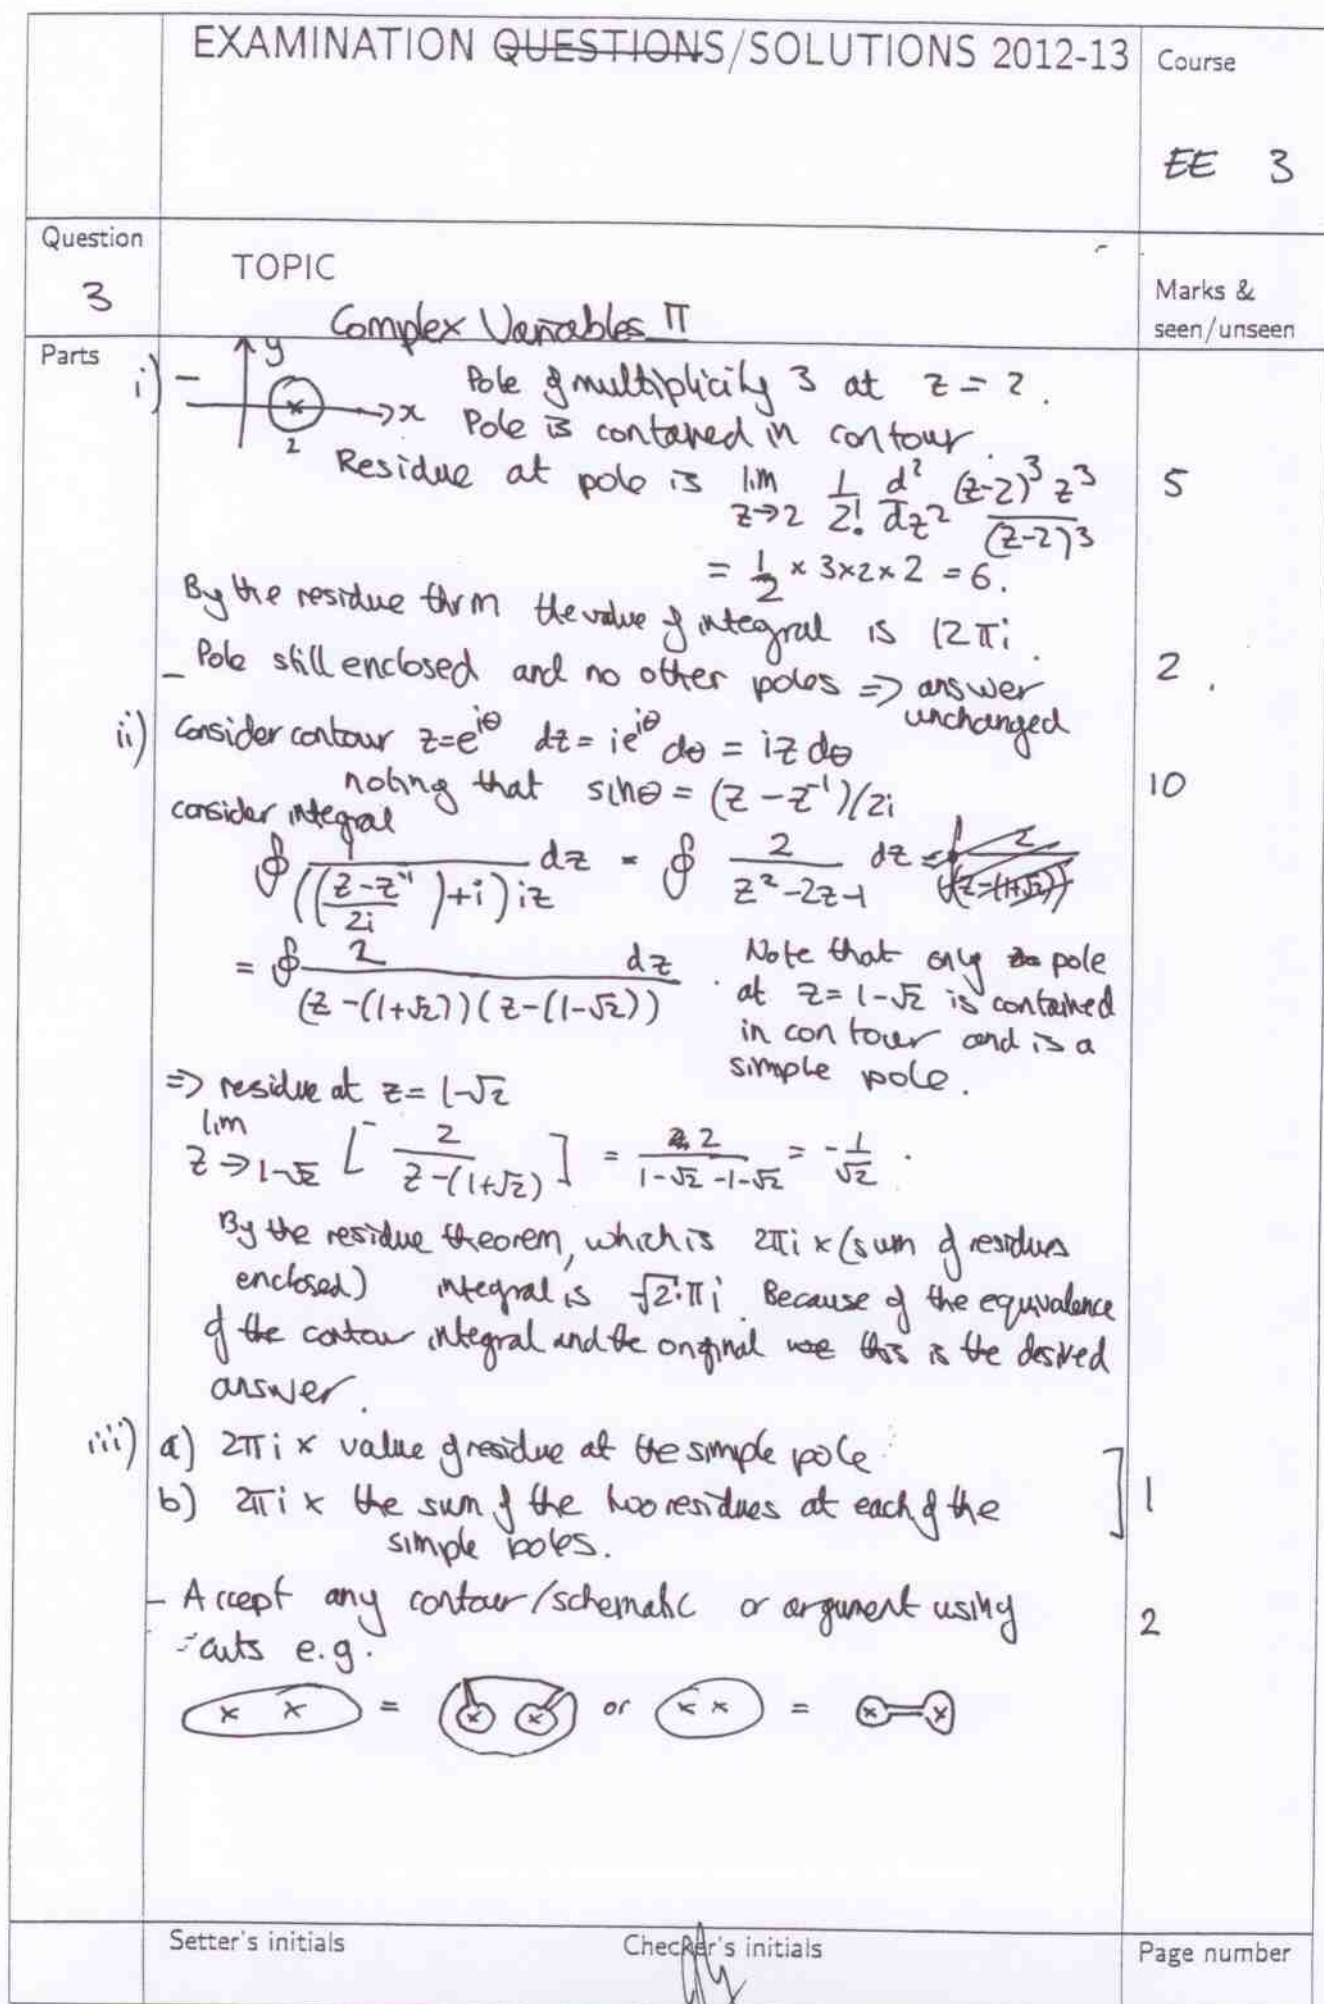 EXAMINATION QUESTIONS/SOLUTIONS 2012-13
Course
EE 3
Question
3
TOPIC
Complex Variables II
Marks &
seen/unseen
Parts
i) - y Pole of multiplicity 3 at z = 2.
x Pole is contained in contour.
2
Residue at pole is lim z→2 1/2! d²/dz² (z-2)³ z³/(z-2)³
5
= 1/2 × 3×2×2 = 6.
By the residue thrm the value of integral is 12πi.
- Pole still enclosed and no other poles => answer
unchanged
2
ii) Consider contour z=e^{iθ} dz = ie^{iθ} dθ = iz dθ
noting that sinθ = (z - z⁻¹)/2i
10
consider integral
∮ 1/(((z - z⁻¹)/2i) + i) iz dz = ∮ 2/(z²-2z-1) dz = ∮ 2/((z-(1+√2))
= ∮ 2/((z-(1+√2))(z-(1-√2))) dz . Note that only pole
at z=1-√2 is contained
in contour and is a
simple pole.
=> residue at z= 1-√2
lim z→1-√2 [ 2/(z-(1+√2)) ] = 2/(1-√2-1-√2) = -1/√2 .
By the residue theorem, which is 2πi × (sum of residues
enclosed) integral is -√2·πi Because of the equivalence
of the contour integral and the original this is the desired
answer.
iii) a) 2πi × value of residue at the simple pole
b) 2πi × the sum of the two residues at each of the
simple poles.
1
- Accept any contour/schematic or argument using
cuts e.g.
2
x x = x x or x x = x x
Setter's initials
Checker's initials
Page number